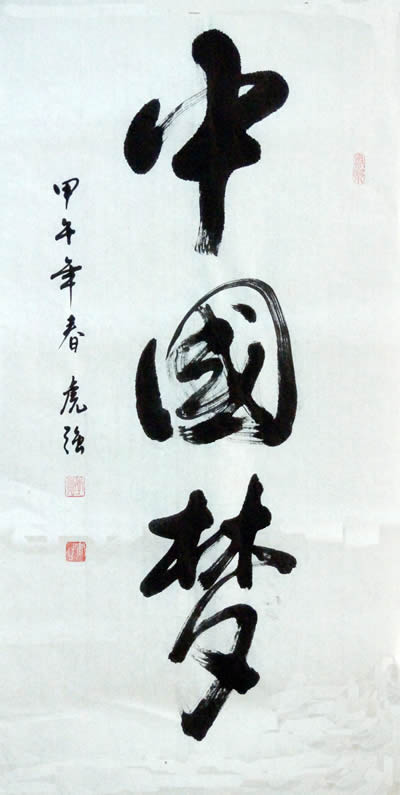 中國梦
甲午年春虎强